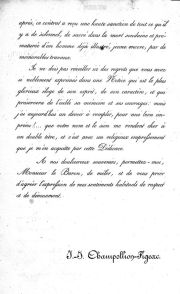 après, ce contrat a reçu une haute sanction de tout ce qu'il
y a de solennel, de sacré dans la mort soudaine et pré-
maturée d'un homme déjà illustre, jeune encore, par de
mémorables travaux.
Je ne dois pas réveiller ici des regrets que vous avez
si noblement exprimés dans une Notice qui est le plus
glorieux éloge de son esprit, de son caractère, et qui
préservera de l'oubli sa mémoire et ses ouvrages: mais
j'ai aujourd'hui un devoir à remplir, pour une bien em-
preint!... que votre nom et le sien me rendent cher à
un double titre, et c'est avec un religieux empressement
que je m'en acquitte par cette Dédicace.
A nos douloureux souvenirs, permettez-moi,
Monsieur le Baron, de mêler, et de vous prier
d'agréer l'expression de mes sentiments habituels de respect
et de dévouement.
J.-J. Champollion-Figeac.